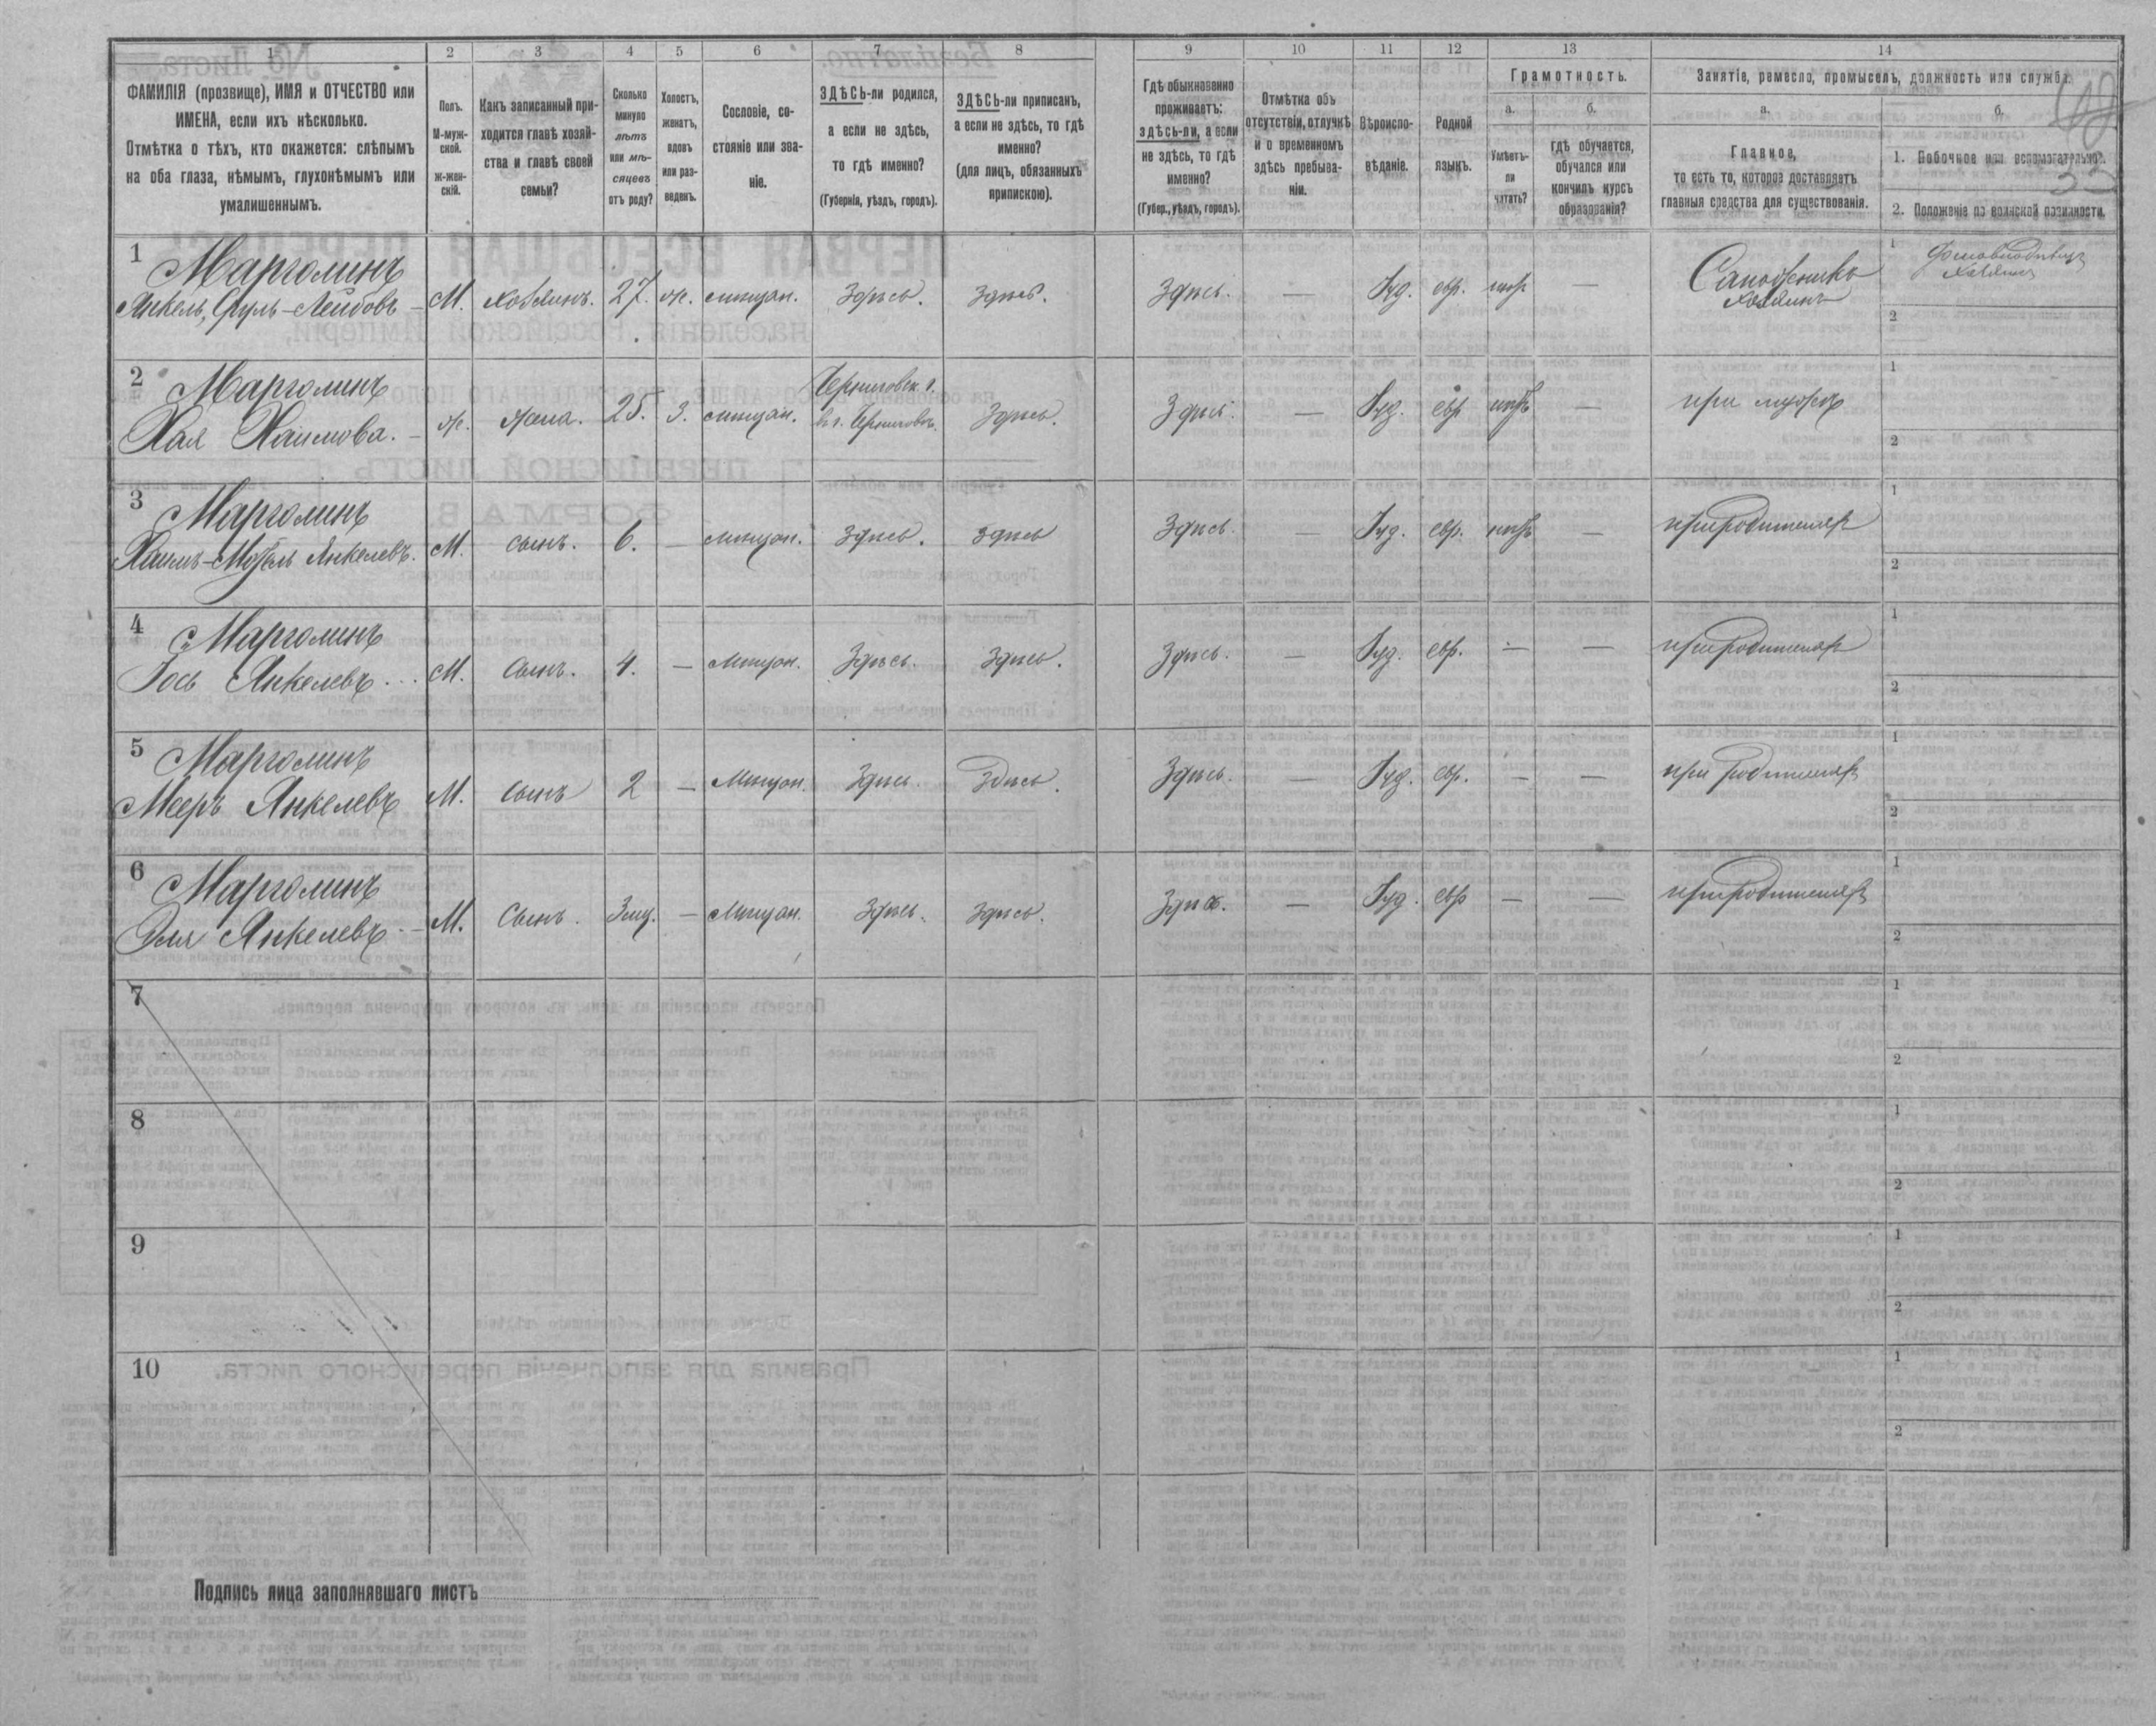 1 2 3 4 5 6 7 8 9 10 11 12 13 14
ФАМИЛІЯ (прозвище), ИМЯ и ОТЧЕСТВО или
ИМЕНА, если ихъ нѣсколько.
Отмѣтка о тѣхъ, кто окажется: слѣпымъ
на оба глаза, нѣмымъ, глухонѣмымъ или
умалишеннымъ.
Полъ.
М-муж-
ской.
ж-жен-
скій.
Какъ записанный при-
ходится главѣ хозяй-
ства и главѣ своей
семьи?
Сколько
минуло
лѣтъ
или мѣ-
сяцевъ
отъ роду?
Холостъ,
женатъ,
вдовъ
или раз-
веденъ.
Сословіе, со-
стояніе или зва-
ніе.
ЗДѢСЬ-ли родился,
а если не здѣсь,
то гдѣ именно?
(Губернія, уѣздъ, городъ).
ЗДѢСЬ-ли приписанъ,
а если не здѣсь, то гдѣ
именно?
(для лицъ, обязанныхъ
припискою).
Гдѣ обыкновенно
проживаетъ:
здѣсь-ли, а если
не здѣсь, то гдѣ
именно?
(Губер., уѣздъ, городъ).
Отмѣтка объ
отсутствіи, отлучкѣ
и о временномъ
здѣсь пребыва-
ніи.
Вѣроиспо-
вѣданіе.
Родной
языкъ.
Грамотность.
а.
Умѣетъ-
ли
читать?
б.
гдѣ обучается,
обучался или
кончилъ курсъ
образованія?
Занятіе, ремесло, промыселъ, должность или служба.
а.
Главное,
то есть то, которое доставляетъ
главныя средства для существованія.
б.
1. Побочное или вспомогательное.
2. Положеніе по воинской повинности.
1 Марголинъ
Янкель, Сруль-Лейбовъ - М. хозяинъ. 27. ж. мѣщан. Здѣсь. Здѣсь. Здѣсь. — Іуд. евр. — Сапожникъ
хозяинъ
1
2
2 Марголинъ
Хая Хаимова. - ж. жена. 25. З. мѣщан. Черниговск. г.
в г. Чернигов. Здѣсь. Здѣсь. — Іуд. евр — при мужѣ
1
2
3 Марголинъ
Хаимъ- Янкелевъ. М. сынъ. 6. — мѣщан. Здѣсь. здѣсь Здѣсь. — Іуд. евр. — при родителяхъ
1
2
4 Марголинъ
Іось Янкелевъ... М. Сынъ. 4. — Мѣщан. Здѣсь. Здѣсь. Здѣсь. — Іуд. евр. — — при родителяхъ
1
2
5 Марголинъ
Мееръ Янкелевъ М. Сынъ 2 — Мѣщан. Здѣсь. Здѣсь. Здѣсь. — Іуд. евр. — — при родителяхъ
1
2
6 Марголинъ
Эля Янкелевъ - М. Сынъ. 3 мц. — Мѣщан. Здѣсь. Здѣсь. Здѣсь. — Іуд. евр — — при родителяхъ
1
2
7
1
2
8
1
2
9
1
2
10
1
2
Подпись лица заполнявшаго листъ